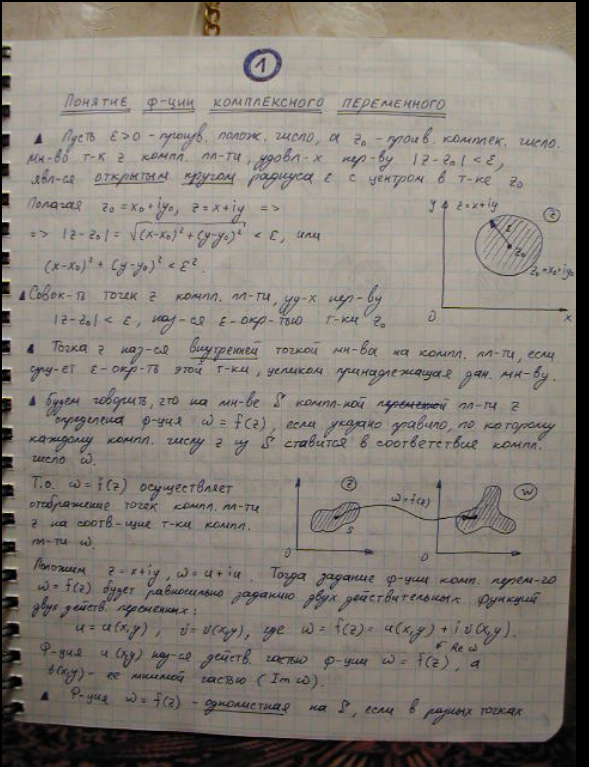 1
Понятие ф-ции комплексного переменного
▲ Пусть ε>0 - произв. полож. число, а z₀ - произв. комплек. число.
Мн-во т-к z компл. пл-ти, удовл-х нер-ву |z-z₀| < ε,
явл-ся открытым кругом радиуса ε с центром в т-ке z₀
Полагая z₀ = x₀+iy₀, z = x+iy =>
=> |z-z₀| = √((x-x₀)²+(y-y₀)²) < ε, или
(x-x₀)² + (y-y₀)² < ε².
y z=x+iy z
ε
z₀
z₀=x₀+iy₀
0 x
▲ Совок-ть точек z компл. пл-ти, уд-х нер-ву
|z-z₀| < ε, наз-ся ε-окр-тью т-ки z₀
▲ Точка z наз-ся внутренней точкой мн-ва на компл. пл-ти, если
сущ-ет ε-окр-ть этой т-ки, целиком принадлежащая дан. мн-ву.
▲ Будем говорить, что на мн-ве S компл-ной пл-ти z
определена ф-ция w = f(z), если указано правило, по которому
каждому компл. числу z из S ставится в соответствие компл.
число w.
Т.о. w = f(z) осуществляет
отображение точек компл. пл-ти
z на соотв-щие т-ки компл.
пл-ти w.
z w=f(z) w
S
0 0
Положим z = x+iy, w = u+iu. Тогда задание ф-ции комп. перем-го
w = f(z) будет равносильно заданию двух действительных функций
двух действ. переменных:
u = u(x,y), v = v(x,y), где w = f(z) = u(x,y) + i v(x,y).
Ф-ция u(x,y) наз-ся действ. частью ф-ции w = f(z), а
Re w
v(x,y) - её мнимой частью (Im w).
▲ Ф-ция w = f(z) - однолистная на S, если в разных точках